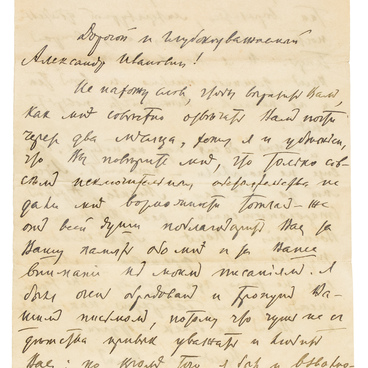 Дорогой и глубокоуважаемый
Александр Иванович!
Не нахожу слов, чтобы выразить Вам,
как мне совестно отвечать Вам почти
через два месяца, хотя я и убежден,
что Вы поверите мне, что только сов-
сем исключительные обстоятельства не
дали мне возможности тотчас-же
от всей души поблагодарить Вас за
Вашу память обо мне и за Ваше
внимание к моим писаниям. Я
был очень обрадован и тронут Ва-
шим письмом, потому что чуть не с
детства привык уважать и любить
Вас; но кроме того я был и